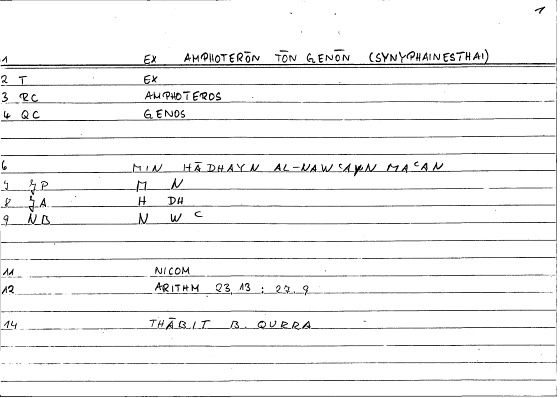 1
1 EX AMPHOTERŌN TŌN GENŌN (SYNYPHAINESTHAI)
2 T EX
3 RC AMPHOTEROS
4 QC GENOS
6 MIN HĀDHAYN AL-NAWᶜAYN MAᶜAN
7 ZP M N
8 ZA H DH
9 NB N W ᶜ
11 NICOM
12 ARITHM 23, 13 : 27. 9
14 THĀBIT B. QURRA